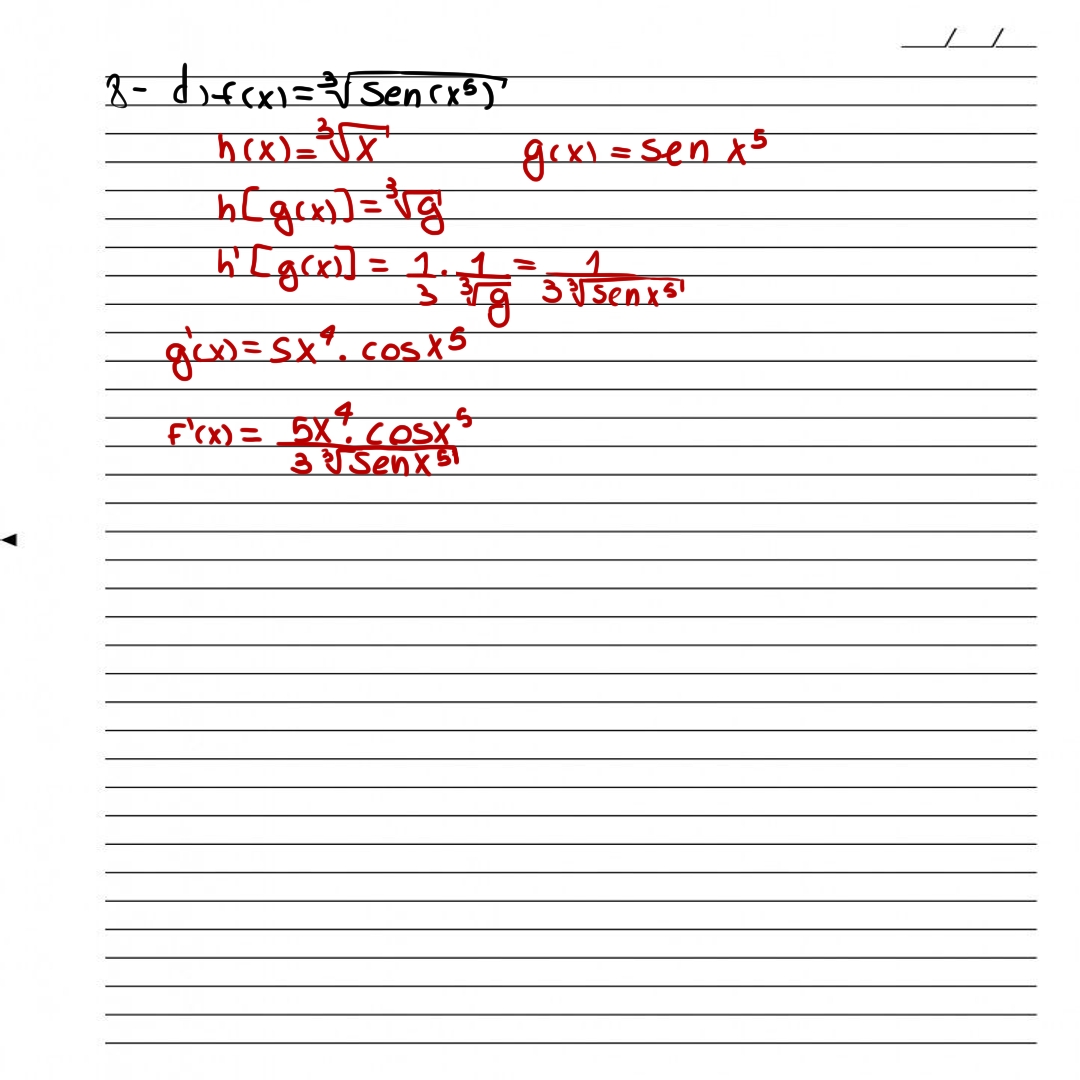 __/__/__
8- d) f(x) = ∛(sen(x⁵))
h(x) = ∛x g(x) = sen x⁵
h[g(x)] = ∛g
h'[g(x)] = 1/3 . 1/∛g = 1/(3 ∛(sen x⁵))
g'(x) = 5x⁴ . cos x⁵
f'(x) = (5x⁴ . cos x⁵)/(3 ∛(sen x⁵))